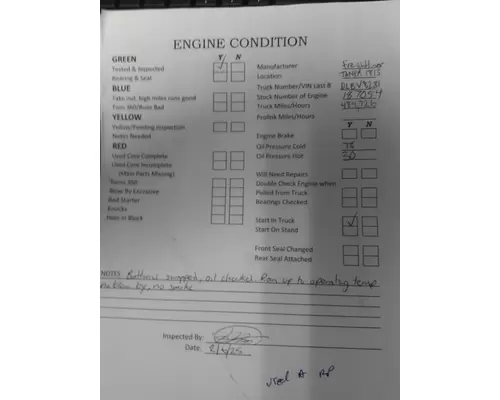 ENGINE CONDITION
GREEN Y N
Tested & Inspected
Bearing & Seal
BLUE
Take out, high miles runs good
Runs Well/Runs Bad
YELLOW
Yellow/Pending Inspection
Notes Needed
RED
Used Core Complete
Used Core Incomplete
(Main Parts Missing)
Turns 360
Blow By Excessive
Bad Starter
Knocks
Hole in Block
Manufacturer
Location
Truck Number/VIN Last 8
Stock Number of Engine
Truck Miles/Hours 484726
Prolink Miles/Hours
Y N
Engine Brake
Oil Pressure Cold
Oil Pressure Hot 30
Will Need Repairs
Double Check Engine when
Pulled from Truck
Bearings Checked
Start In Truck
Start On Stand
Front Seal Changed
Rear Seal Attached
NOTES: Batteries swapped, oil checked. Ran up to operating temp
no blow by, no smoke
Inspected By:
Date: